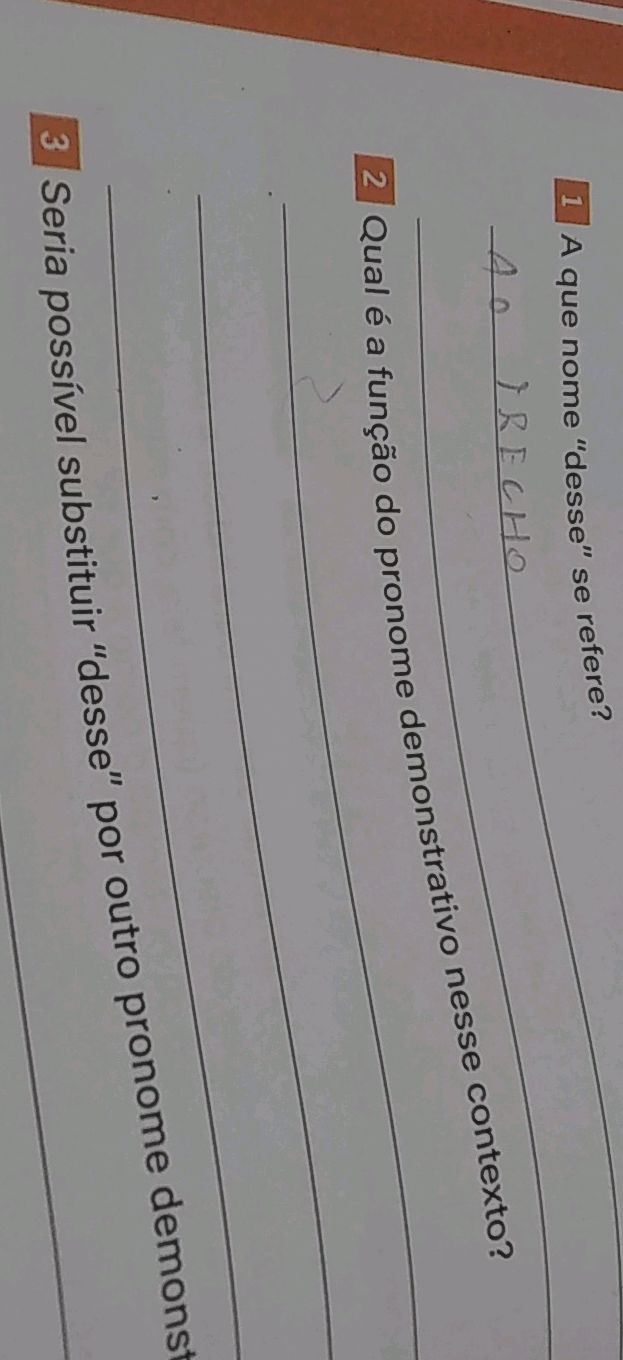 1 A que nome "desse" se refere?
AO TRECHO
2 Qual é a função do pronome demonstrativo nesse contexto?
3 Seria possível substituir "desse" por outro pronome demonst